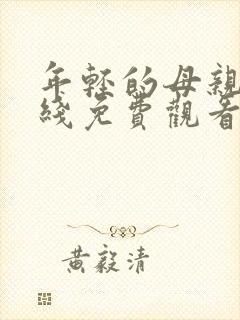 年轻的母親
綫免費觀看
黃毅清